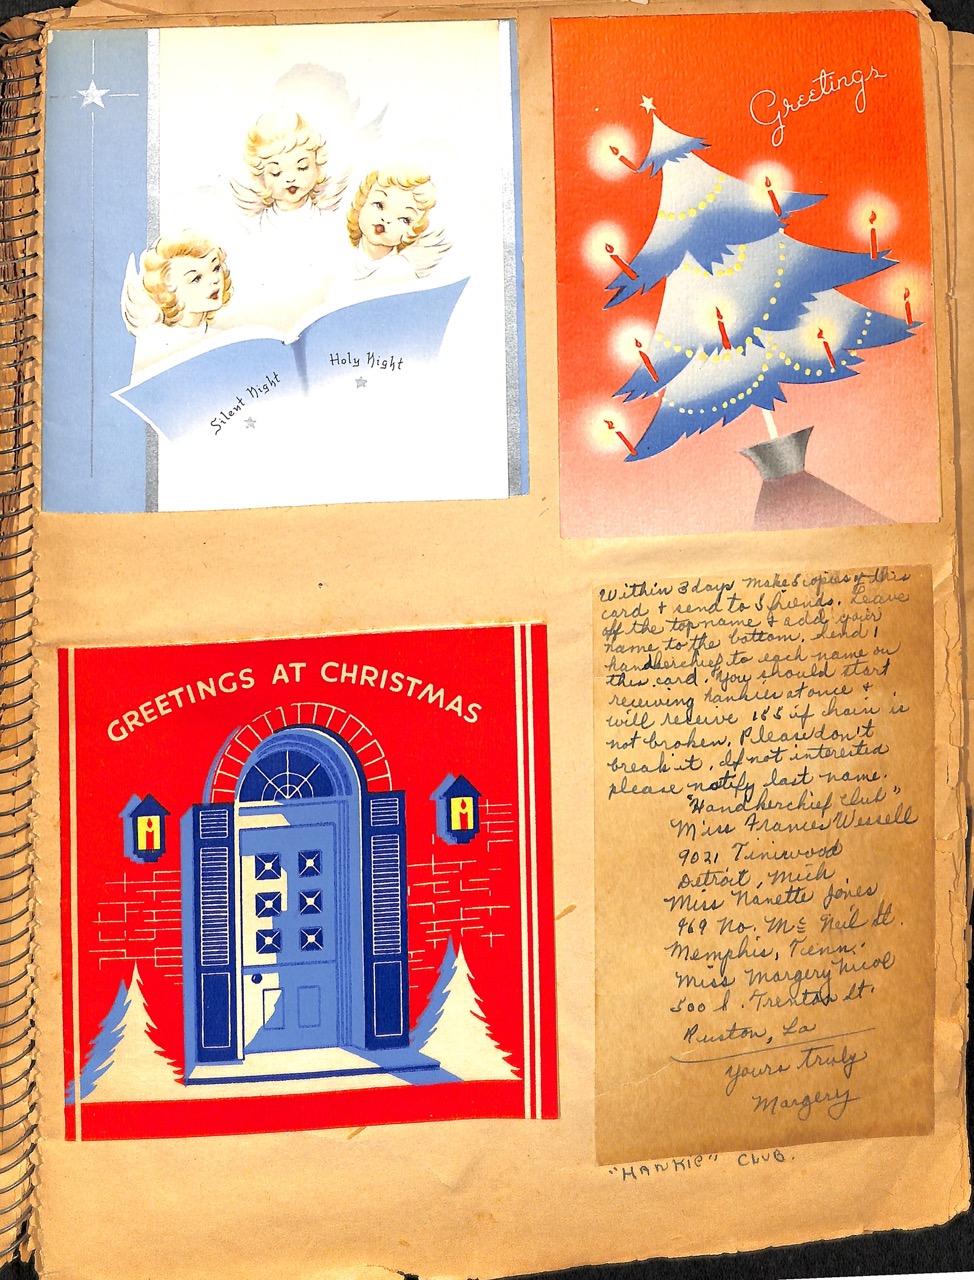 Silent Night
Holy Night
Greetings
GREETINGS AT CHRISTMAS
Within 3 days make 5 copies of this
card & send to 5 friends. Leave
off the top name & add your
name to the bottom. Send 1
handkerchief to each name on
this card. You should start
receiving hankies at once &
will receive 155 if chain is
not broken. Please don't
break it. If not interested
please notify last name.
"Handkerchief Club"
Miss Frances Wessell
9021 Tiniwood
Detroit, Mich
Miss Nanette Jones
969 No. Mc Neil St.
Memphis, Tenn.
Miss Margery Nicol
500 S. Trenton St.
Ruston, La
Yours truly
Margery
"HANKIE" CLUB.